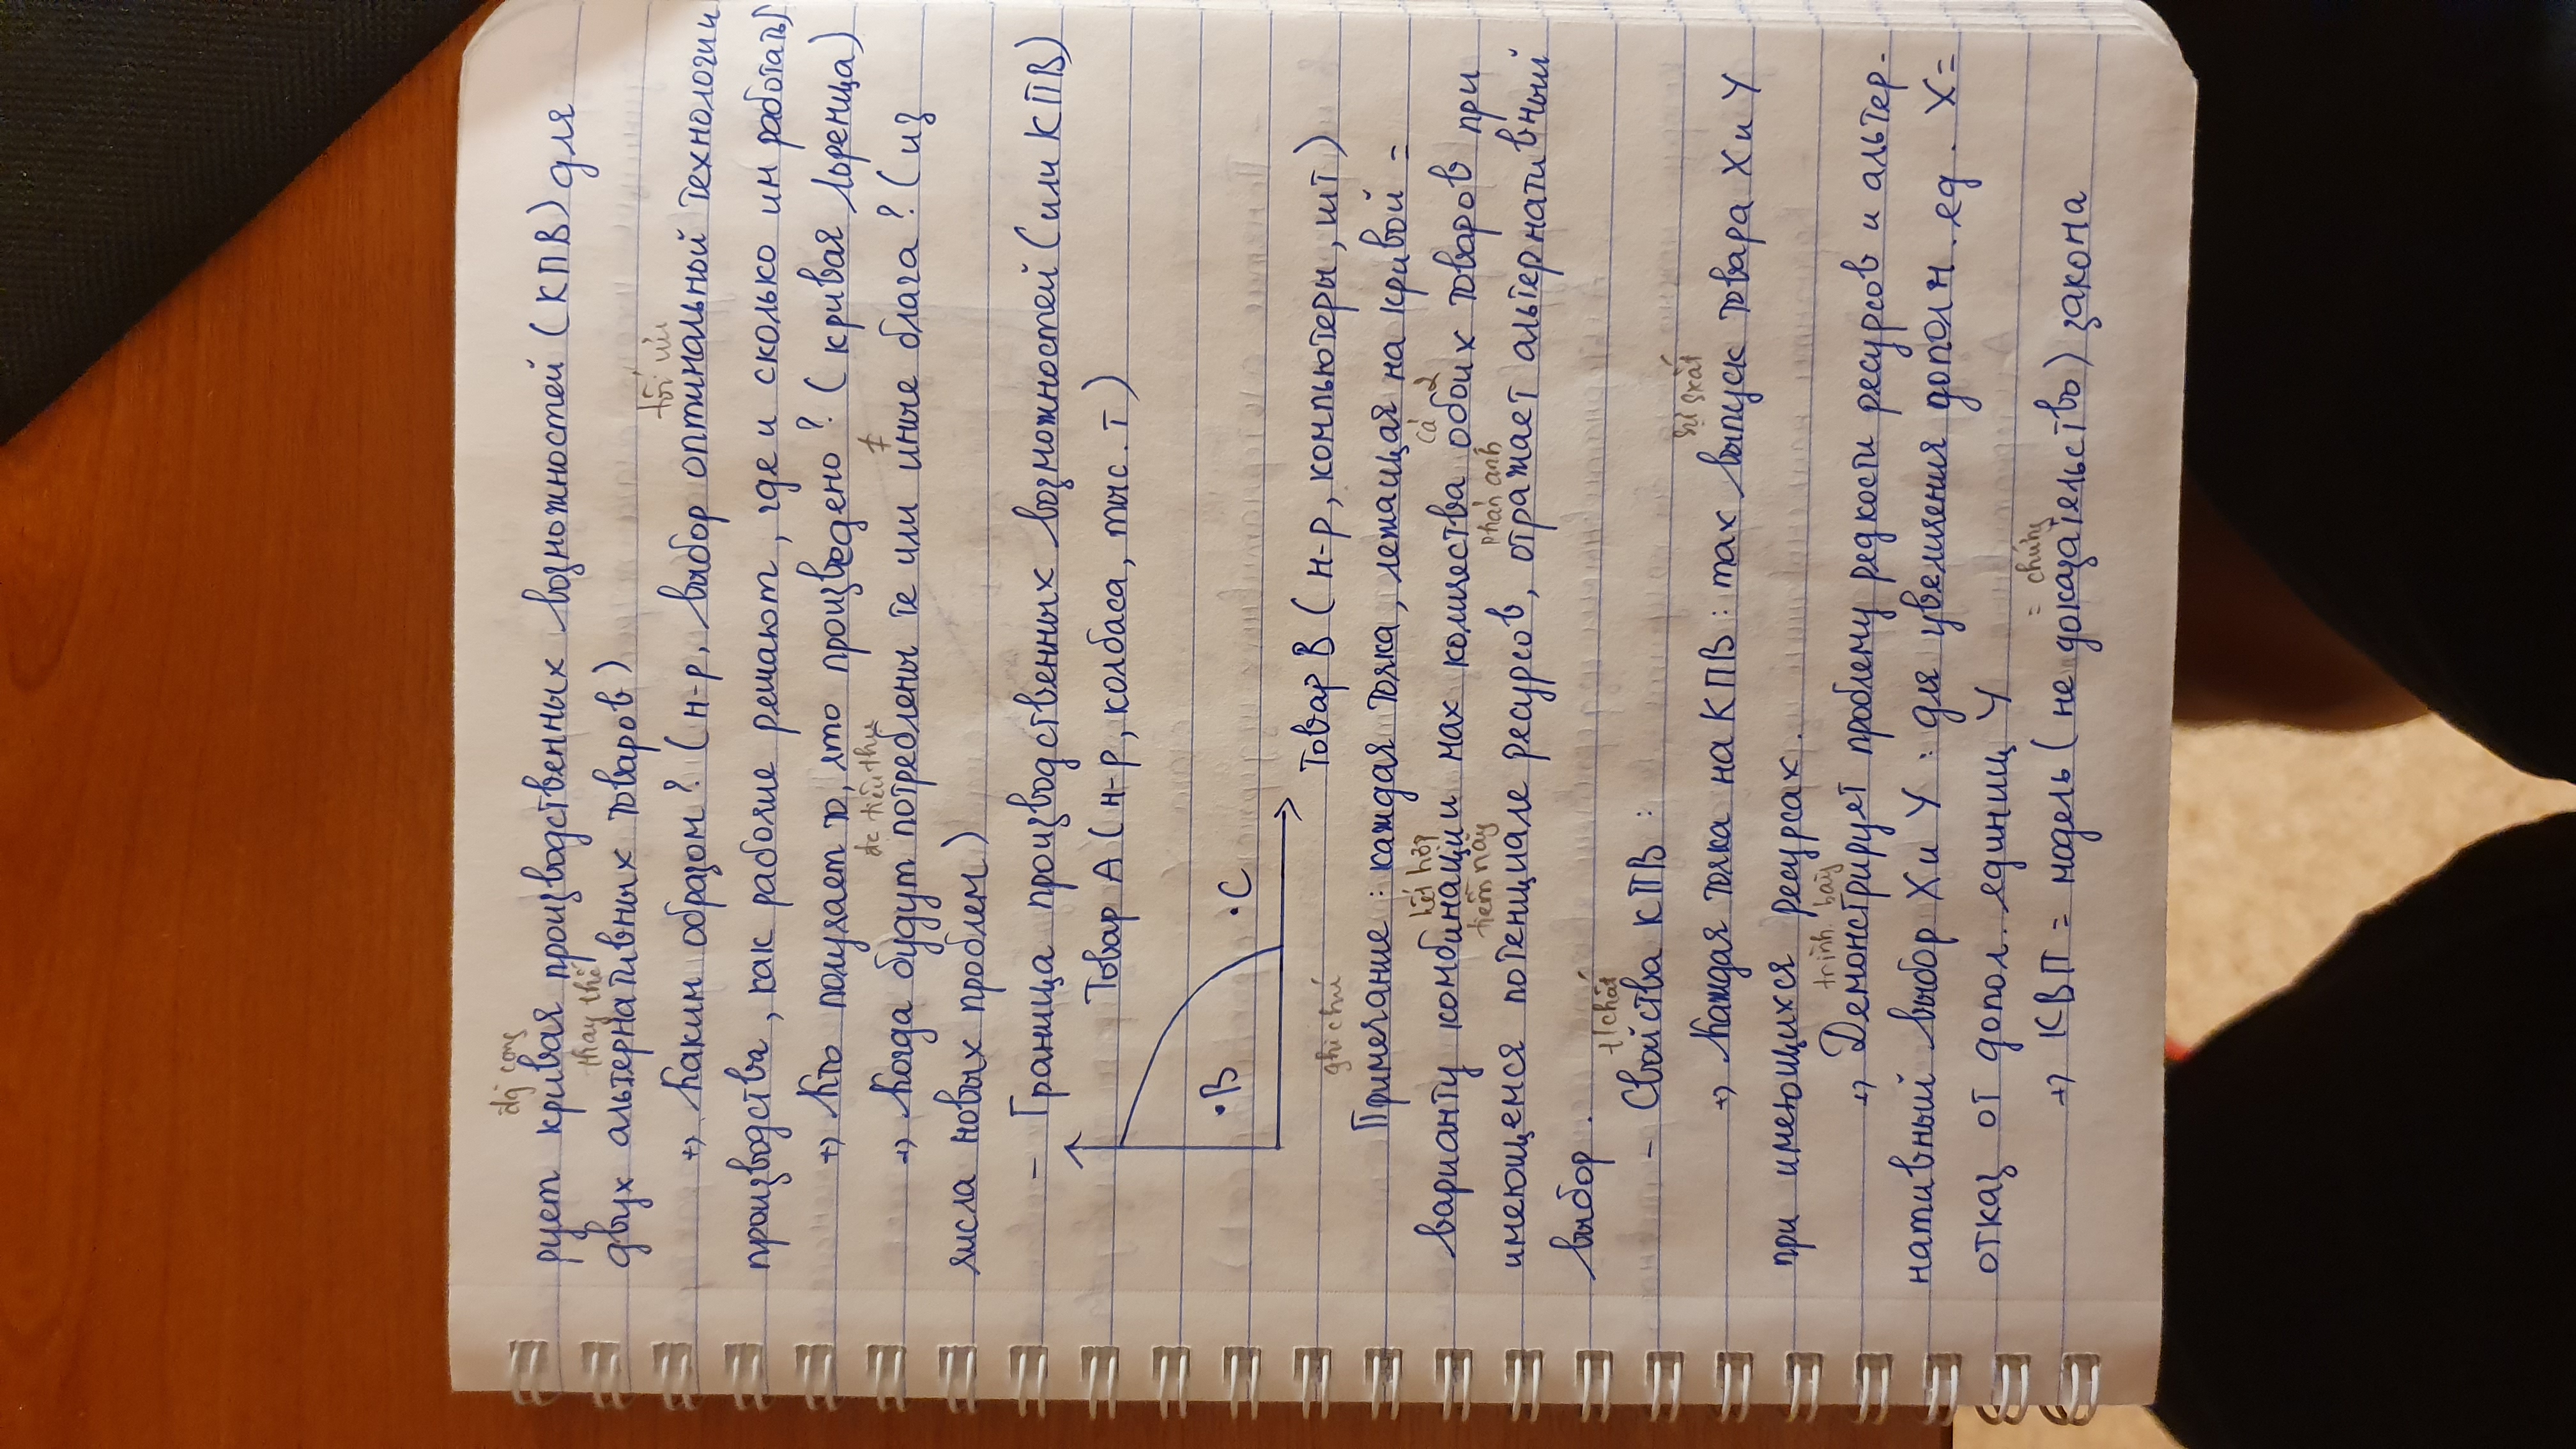 đg cong
рует кривая производственных возможностей (КПВ) для
thay thế
двух альтернативных товаров)
tối ưu
+, Каким образом? (н-р, выбор оптимальной технологии
производства, как рабочие решают, где и сколько им работать)
+, Кто получает то, что произведено? (кривая Лоренца)
đc tiêu thụ ≠
+, Когда будут потреблены те или иные блага? (из
числа новых проблем)
- Граница производственных возможностей (или КПВ)
Товар А (н-р, колбаса, тыс. т)
•B •C
Товар В (н-р, компьютеры, шт)
ghi chú
Примечание: каждая точка, лежащая на кривой =
kết hợp cả 2
варианту комбинации мах количества обоих товаров при
tiềm năng phản ánh
имеющемся потенциале ресурсов, отражает альтернативный
выбор.
t/chất
- Свойства КПВ:
sự sxất
+, Каждая точка на КПВ: max выпуск товара X и Y
при имеющихся ресурсах.
trình bày
+, Демонстрирует проблему редкости ресурсов и альтер-
нативный выбор X и Y: для увеличения дополн. ед. X =
отказ от допол. единиц Y
= chứng
+, КВП = модель (не доказательство) закона